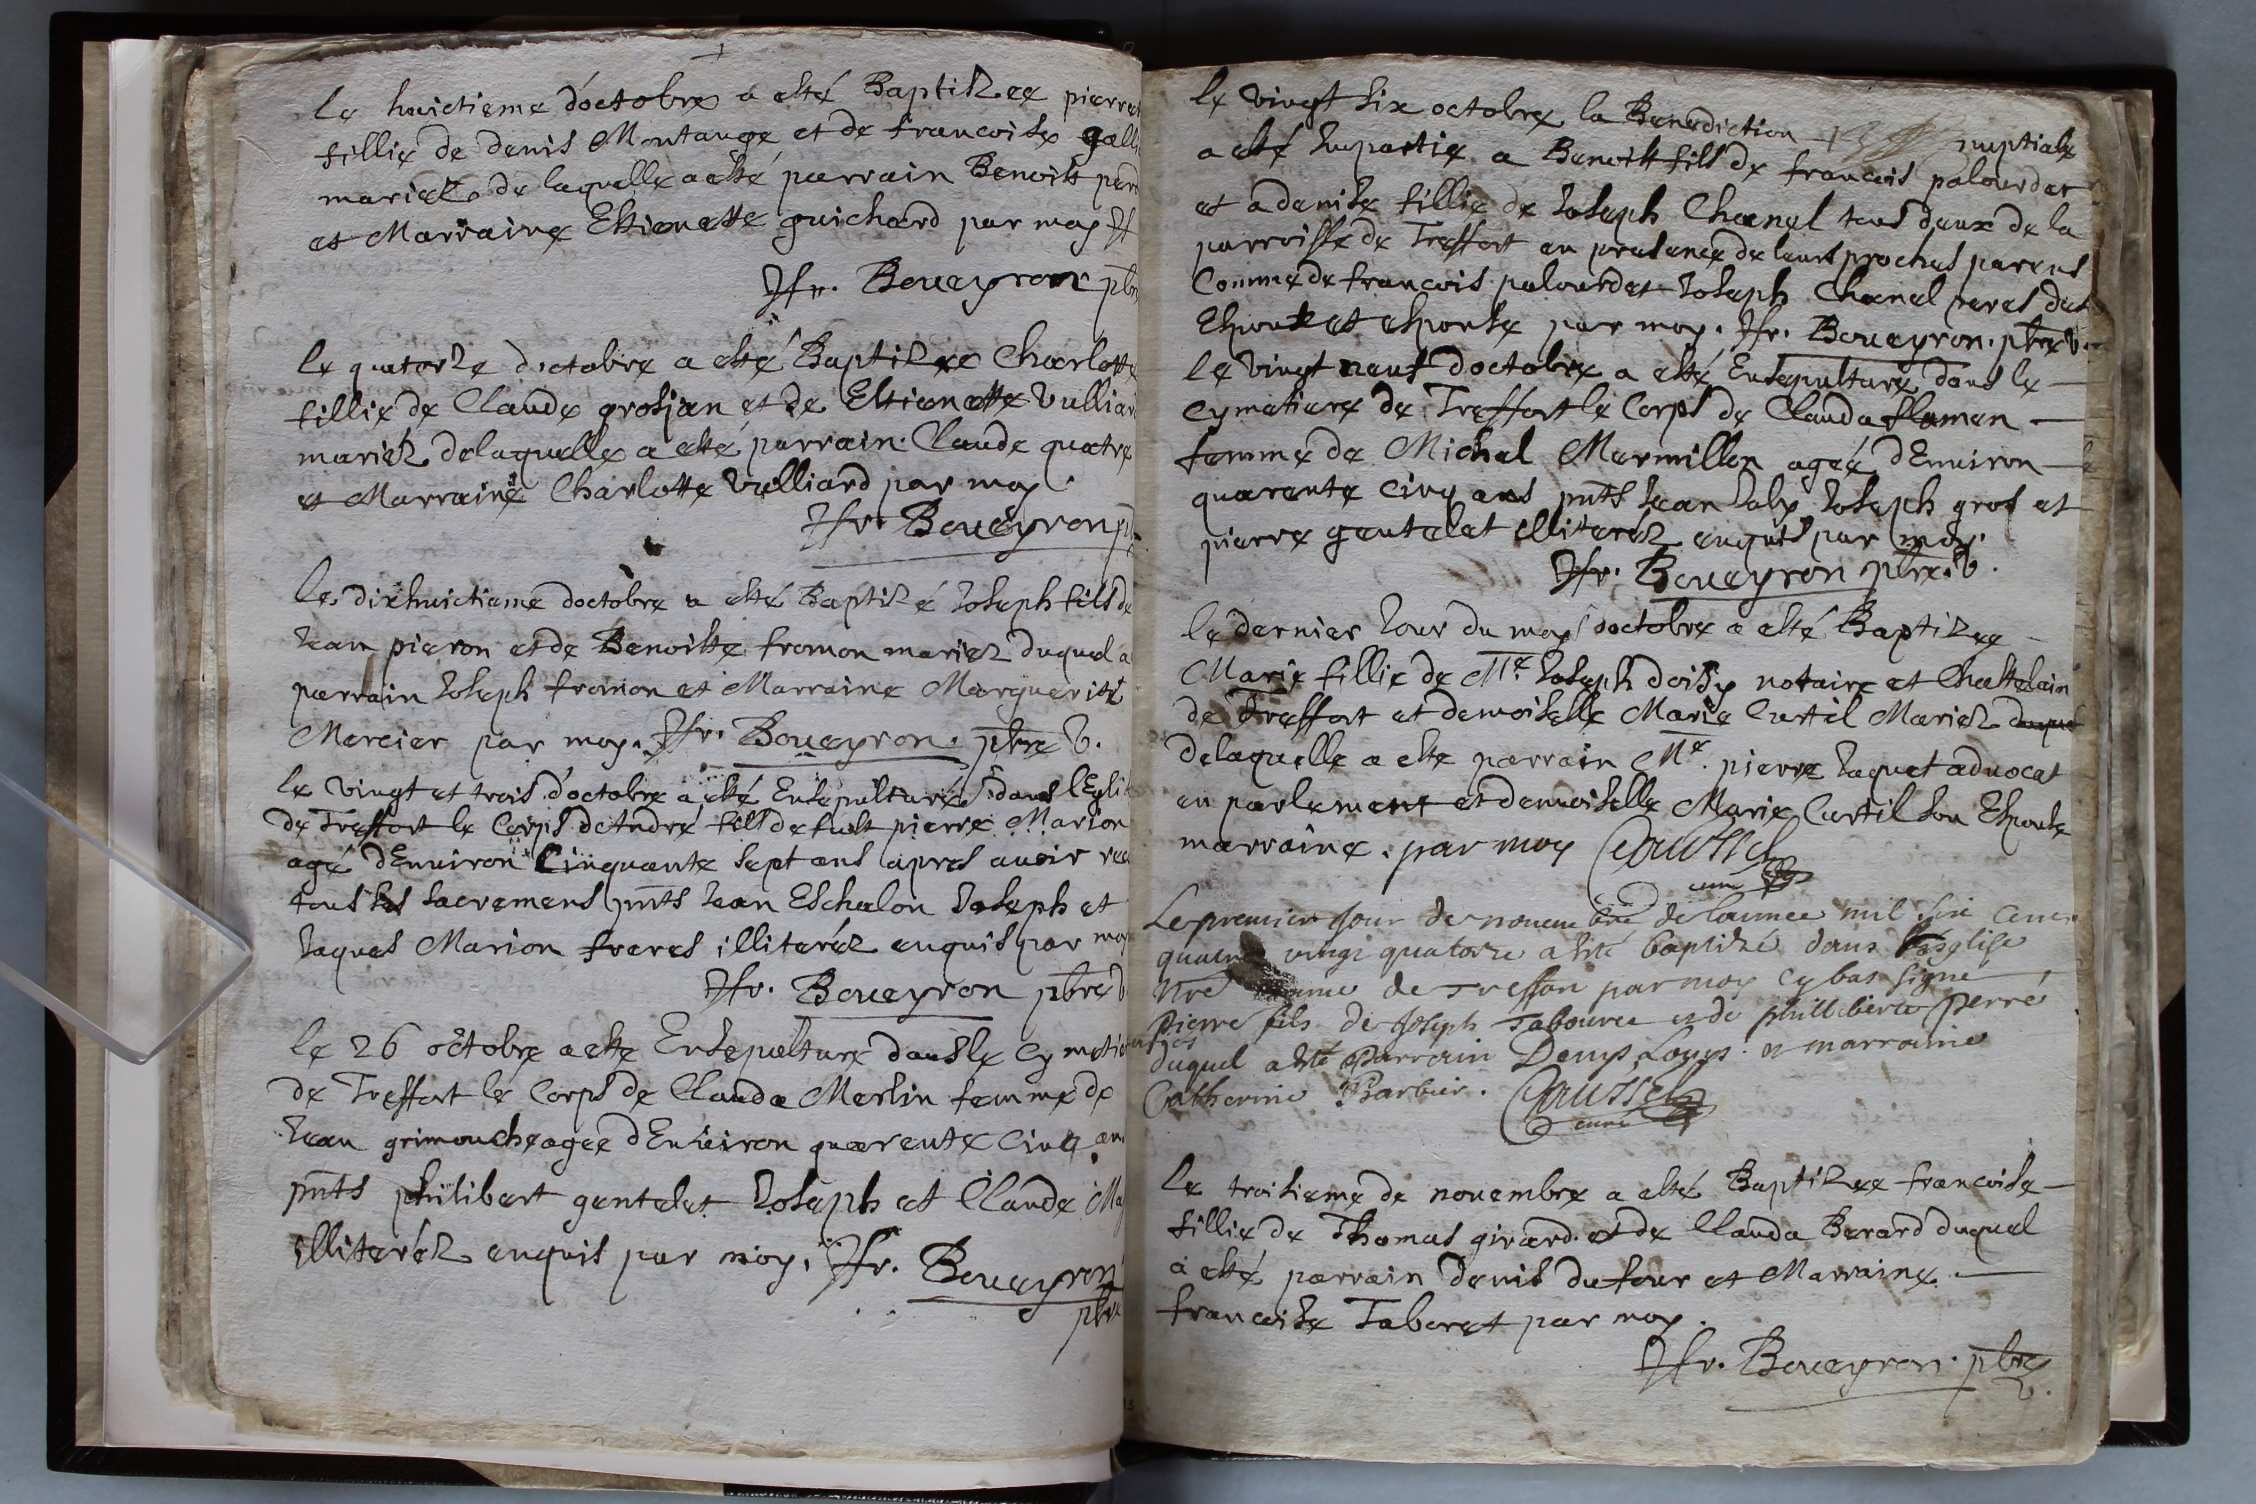 le huictieme doctobre a esté Baptizee pierret
fillie de denis Montange et de francoise
mariez de laquelle a esté parrain Benoist
et Marraine Estienette guichard par moy
Jfr. Boueyron pbre
le quatorze doctobre a esté Baptizee Charlotte
fillie de Claude grosjan et de Estienette Vulliard
mariez delaquelle a esté parrain Claude quatre
et Marraine Charlotte Vulliard par moy.
Jfr. Boueyron
le dixhuictieme doctobre a esté Baptizé Joseph fils de
Jean pieron et de Benoiste fromon mariez duquel a
parrain Joseph fromon et Marraine Marguerite
Mercier par moy. Jfr. Boueyron. pbre V.
le vingt et trois d'octobre a esté Ensepulturé dans l'Eglise
de Treffort le Corps de Andre fils de fust pierre Marion
agé dEnuiron Cinquante sept ans apres auoir
tous les sacremens pnts Jean Eschalon Joseph et
Jaques Marion freres illiteréz enquis par moy
Jfr. Boueyron pbre V
le 26 octobre a este Ensepulture dans le Cymetie
de Treffort le Corps de Clauda Merlin femme de
Jean grimouche agee dEnuiron quarente Cinq an
pnts philibert gentelet Joseph et Claude
illiteréz enquis par moy. Jfr. Boueyron
pbre
le vingt six octobre la Benediction nuptiale
a esté Impartie a Benoist fils de francois palourdet
et a denise fillie de Joseph Chanel tous deux de la
parroisse de Treffort en presence de leurs proches parens
Comme de francois palourdet Joseph Chanel peres des
Espoux et espouse par moy. Jfr. Boueyron. pbre V.
le vingt neuf doctobre a esté Ensepulturé dans le
Cymetiere de Treffort le Corps de Clauda flamen
femme de Michel Mermillon agée dEnuiron
quarente cinq ans pnts Jean Joseph gros et
pierre gentelet illiteréz enquis par moy.
Jfr. Boueyron pbre. V.
le dernier Jour du moys doctobre a esté Baptizee
Marie fillie de Me. Joseph doisy notaire et Chastelain
de Treffort et demoiselle Marie Curtil Mariez duquel
delaquelle a este parrain Me. pierre Jaquet aduocat
en parlement et demoiselle Marie Curtil son Espouse
marraine. par moy Caussel
curé
Le premier Jour de nouembre de lannee mil six cent
quatre vingt quatorze a esté baptizé dans l'esglise
de Treffort par moy cy bas signé
Pierre fils de Joseph Tabouret et de philliberte Perré
duquel a esté Parrain Denys Louys. et marraine
Catherine Barbier. Caussel
curé
le troisieme de nouembre a esté Baptizee francoise
fillie de Thomas girard. et de Clauda Berard duquel
a esté parrain denis dufour et Marraine
francoise Taboret par moy.
Jfr. Boueyron. pbre
V.